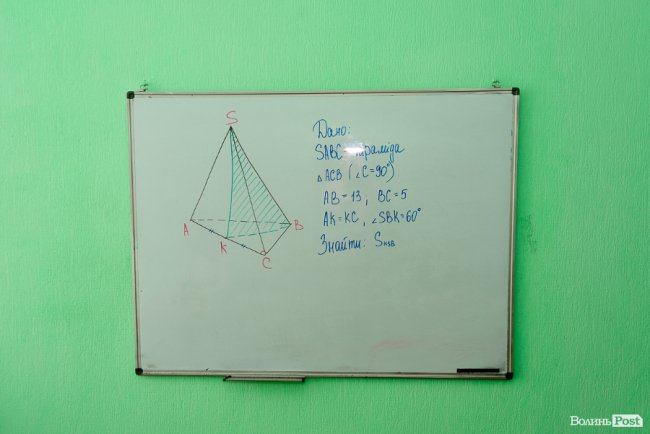 S
A
B
K
C
Дано:
SABC - піраміда
△ACB (∠C=90°)
AB=13, BC=5
AK=KC, ∠SBK=60°
Знайти: S_KSB
ВолиньPost